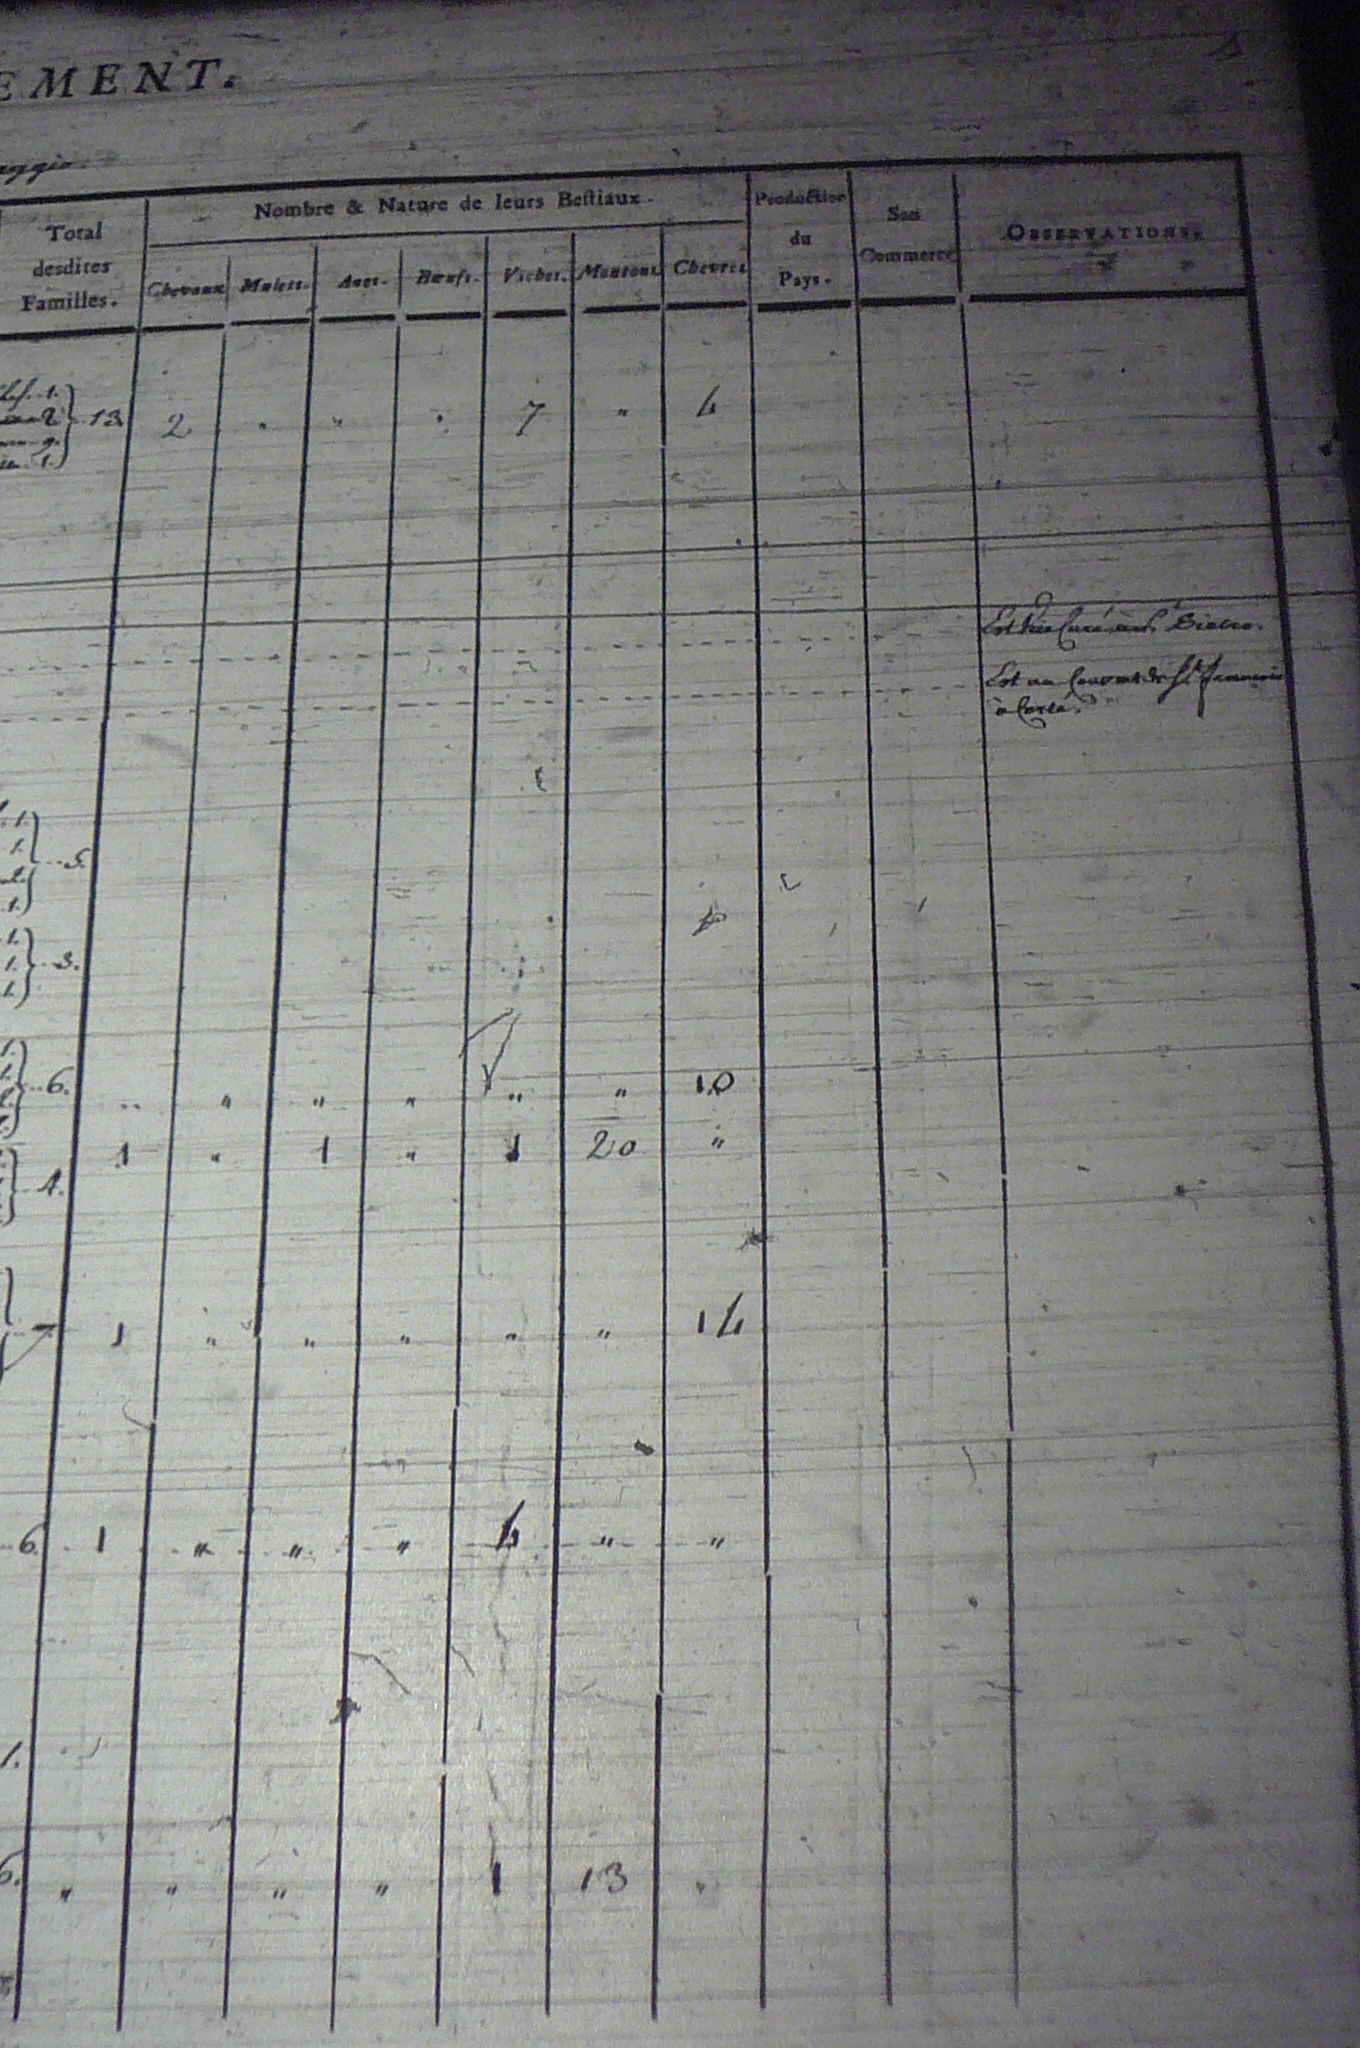 EMENT.
aggio.
Total desdites Familles.
Nombre & Nature de leurs Bestiaux.
Chevaux Mulets. Anes. Bœufs. Vaches. Moutons Chevres
Production du Pays.
Son Commerce
OBSERVATIONS.
1.
2
9.
1.
13. 2 " " " 7 " 4
Est vice Curé à
Est au Couvent de
à Corte.
1.
1.
2.
1.
5.
1.
1.
1.
3.
1.
1.
6. " " " " " " 10
4. 1 " 1 " 1 20 "
1 " " " " " 14
6. 1 " " " 4 " "
1.
6. " " " " 1 13 "